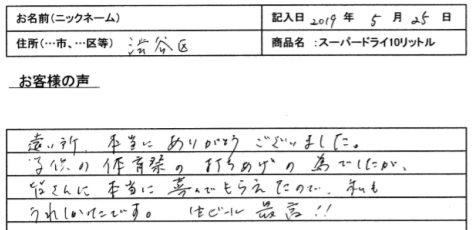 お名前(ニックネーム)
記入日 2019 年 5 月 25 日
住所(…市、…区等) 渋谷区
商品名:スーパードライ10リットル
お客様の声
遠い所、本当にありがとうございました。
子供の体育祭の打ちあげの為でしたが、
皆さんに本当に喜んでもらえたので、私も
うれしかったです。 生ビール最高!!